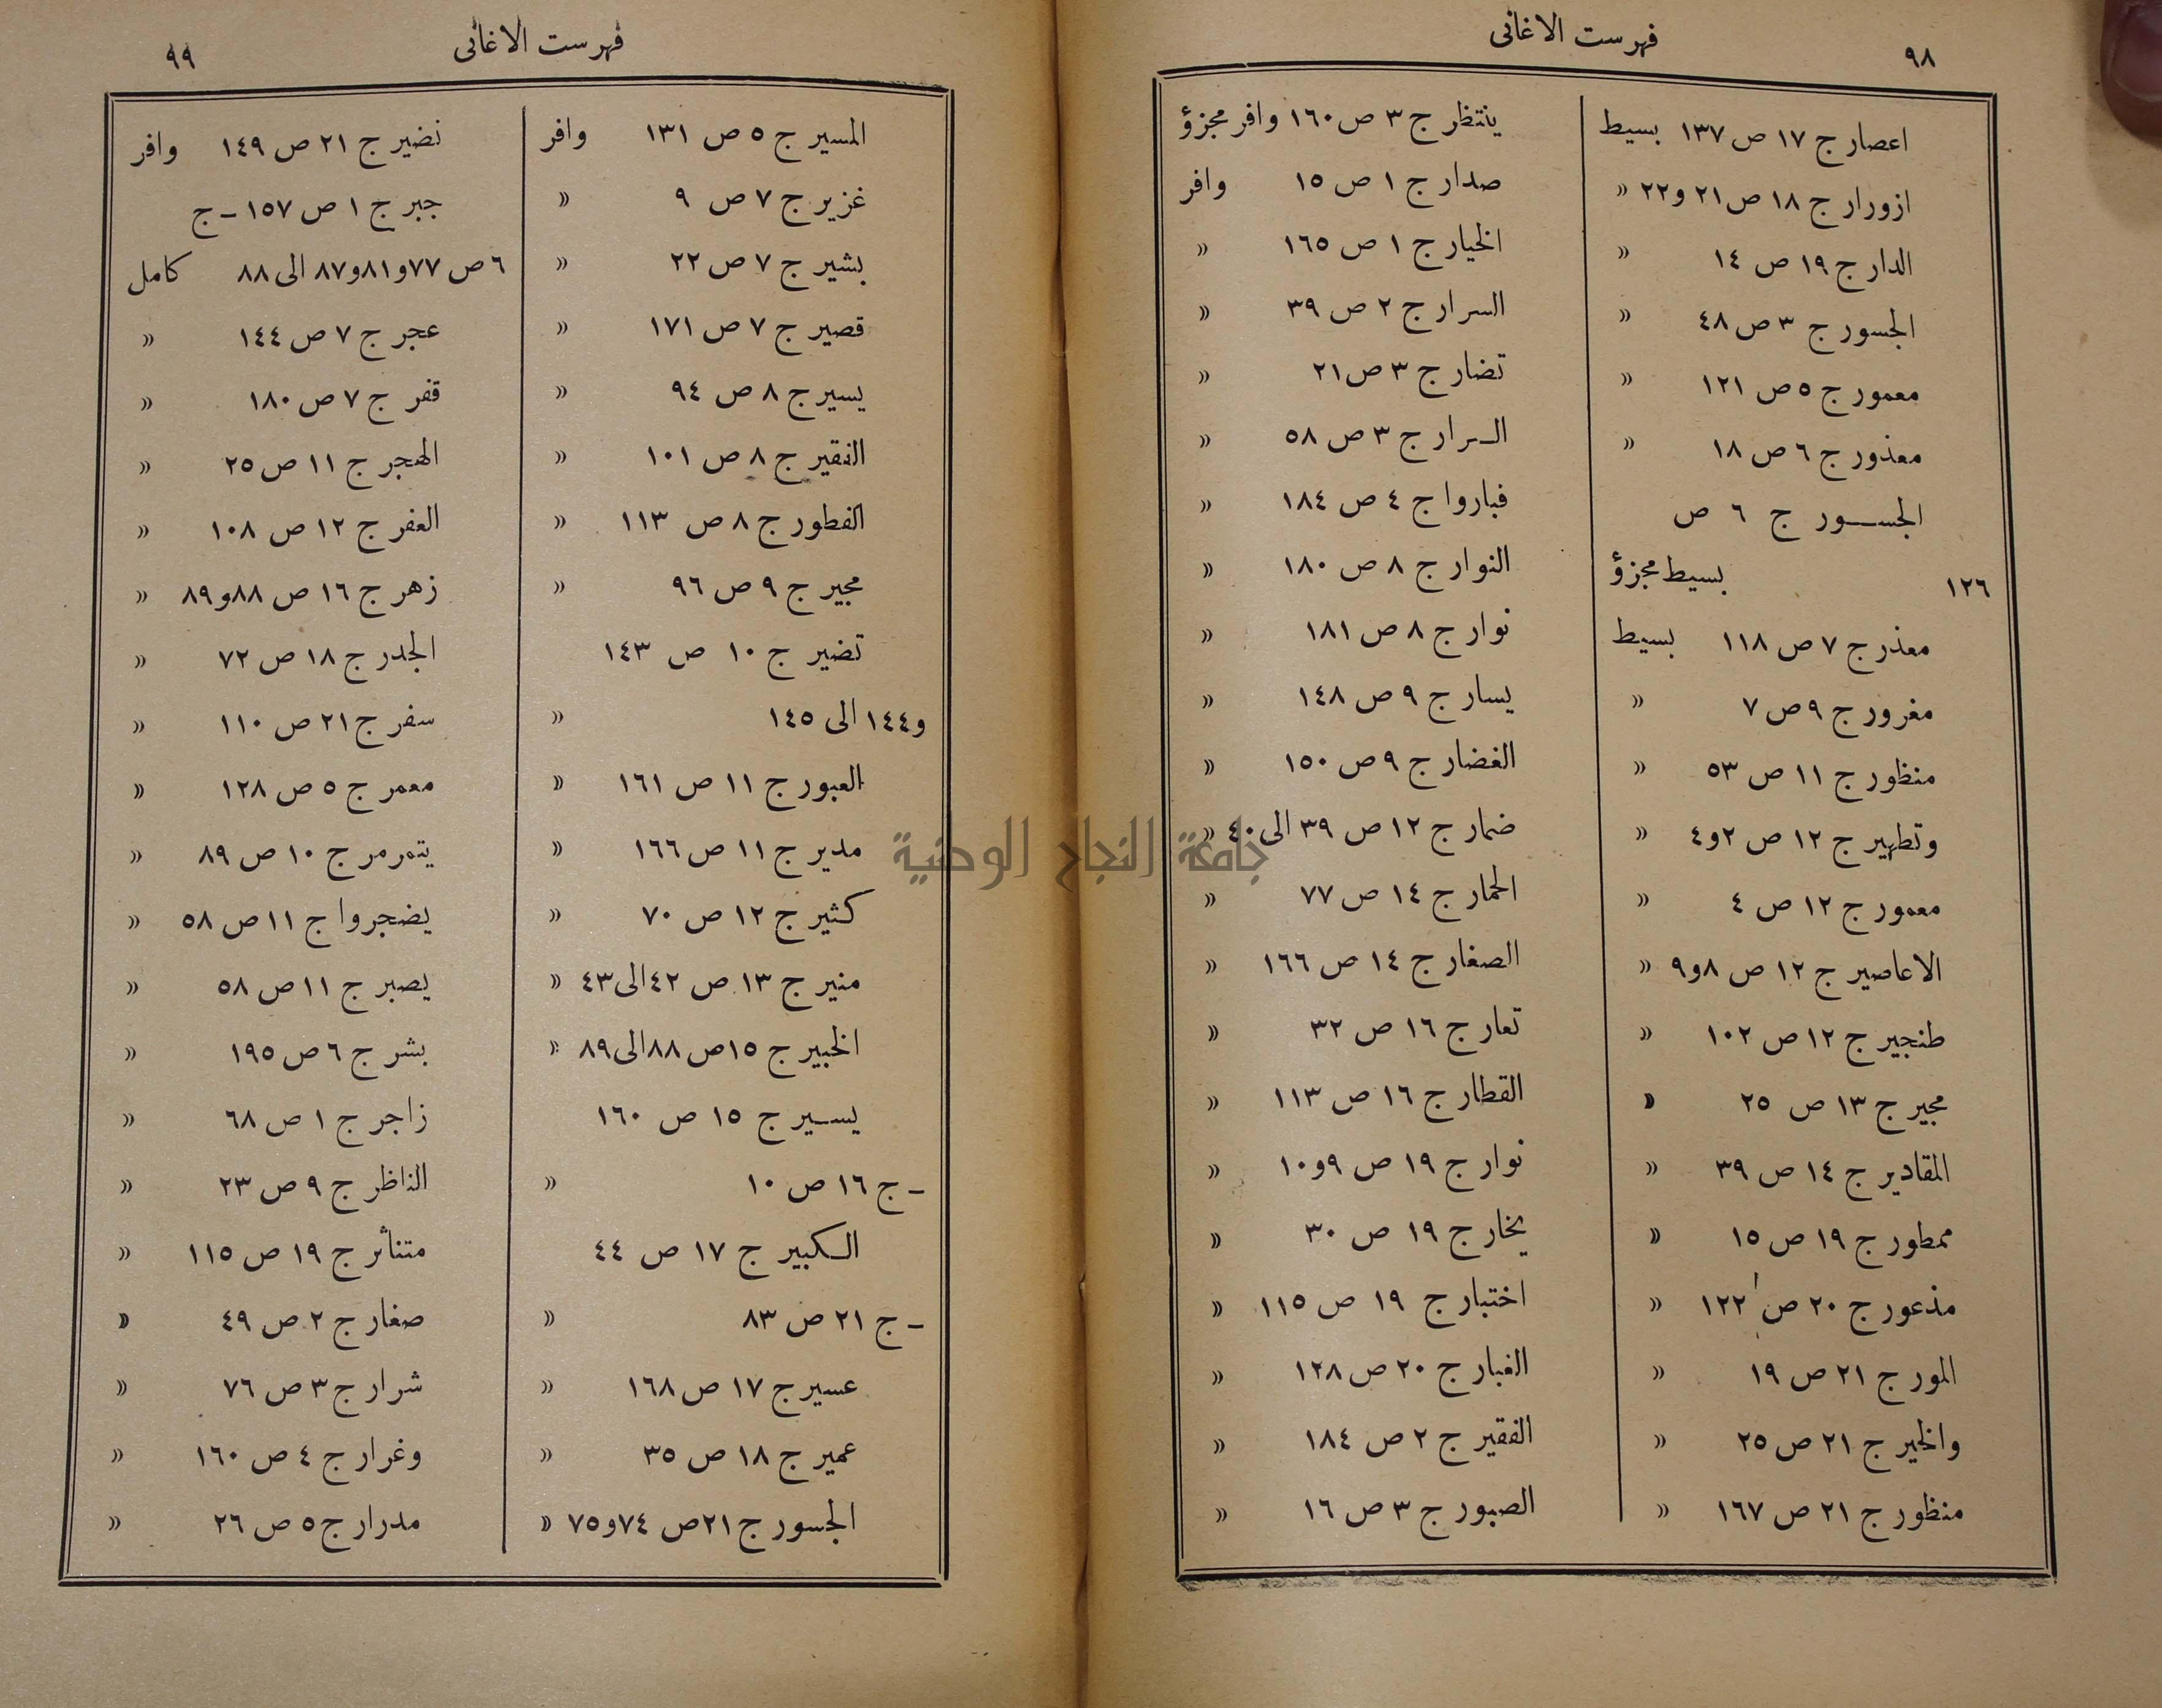 ٩٨
فهرست الاغانى
اعصار ج ١٧ ص ١٣٧ بسيط
ازورار ج ١٨ ص ٢١ و٢٢ »
الدار ج ١٩ ص ١٤ »
الجسور ج ٣ ص ٤٨ »
معمور ج ٥ ص ١٢١ »
معذور ج ٦ ص ١٨ »
الجســور ج ٦ ص
١٢٦ بسيط مجزؤ
معذر ج ٧ ص ١١٨ بسيط
مغرور ج ٩ ص ٧ »
منظور ج ١١ ص ٥٣ »
وتطهير ج ١٢ ص ٢و٤ »
معمور ج ١٢ ص ٤ »
الاعاصير ج ١٢ ص ٨و٩ »
طنجير ج ١٢ ص ١٠٢ »
مجير ج ١٣ ص ٢٥ »
المقادير ج ١٤ ص ٣٩ »
ممطور ج ١٩ ص ١٥ »
مذعور ج ٢٠ ص ١٢٢ »
المور ج ٢١ ص ١٩ »
والخير ج ٢١ ص ٢٥ »
منظور ج ٢١ ص ١٦٧ »
ينتظر ج ٣ ص ١٦٠ وافر مجزؤ
صدار ج ١ ص ١٥ وافر
الخيار ج ١ ص ١٦٥ »
السرار ج ٢ ص ٣٩ »
تضار ج ٣ ص ٢١ »
السرار ج ٣ ص ٥٨ »
فباروا ج ٤ ص ١٨٤ »
النوار ج ٨ ص ١٨٠ »
نوار ج ٨ ص ١٨١ »
يسار ج ٩ ص ١٤٨ »
الغضار ج ٩ ص ١٥٠ »
ضمار ج ١٢ ص ٣٩ الى ٤٠ »
الحمار ج ١٤ ص ٧٧ »
الصغار ج ١٤ ص ١٦٦ »
تعار ج ١٦ ص ٣٢ »
القطار ج ١٦ ص ١١٣ »
نوار ج ١٩ ص ٩و١٠ »
يخار ج ١٩ ص ٣٠ »
اختبار ج ١٩ ص ١١٥ »
الغبار ج ٢٠ ص ١٢٨ »
الفقير ج ٢ ص ١٨٤ »
الصبور ج ٣ ص ١٦ »
جامعة النجاح الوطنية
فهرست الاغانى
٩٩
المسير ج ٥ ص ١٣١ وافر
غزير ج ٧ ص ٩ »
بشير ج ٧ ص ٢٢ »
قصير ج ٧ ص ١٧١ »
يسير ج ٨ ص ٩٤ »
النقير ج ٨ ص ١٠١ »
الفطور ج ٨ ص ١١٣ »
مجير ج ٩ ص ٩٦ »
تضير ج ١٠ ص ١٤٣
و١٤٤ الى ١٤٥ »
العبور ج ١١ ص ١٦١ »
مدير ج ١١ ص ١٦٦ »
كثير ج ١٢ ص ٧٠ »
منير ج ١٣ ص ٤٢الى٤٣ »
الخبير ج ١٥ص ٨٨الى٨٩ »
يســير ج ١٥ ص ١٦٠
ـ ج ١٦ ص ١٠ »
الـكبير ج ١٧ ص ٤٤
ـ ج ٢١ ص ٨٣ »
عسير ج ١٧ ص ١٦٨ »
عمير ج ١٨ ص ٣٥ »
الجسور ج ٢١ص ٧٤و٧٥ »
نضير ج ٢١ ص ١٤٩ وافر
جبر ج ١ ص ١٥٧ ـ ج
٦ ص ٧٧و٨١و٨٧ الى ٨٨ كامل
عجر ج ٧ ص ١٤٤ »
قفر ج ٧ ص ١٨٠ »
الهجر ج ١١ ص ٢٥ »
العفر ج ١٢ ص ١٠٨ »
زهر ج ١٦ ص ٨٨و٨٩ »
الجدر ج ١٨ ص ٧٢ »
سفر ج ٢١ ص ١١٠ »
معمر ج ٥ ص ١٢٨ »
يتمرمر ج ١٠ ص ٨٩ »
يضجروا ج ١١ ص ٥٨ »
يصبر ج ١١ ص ٥٨ »
بشر ج ٦ ص ١٩٥ »
زاجر ج ١ ص ٦٨ »
الناظر ج ٩ ص ٢٣ »
متناثر ج ١٩ ص ١١٥ »
صغار ج ٢ ص ٤٩ »
شرار ج ٣ ص ٧٦ »
وغرار ج ٤ ص ١٦٠ »
مدرار ج ٥ ص ٢٦ »